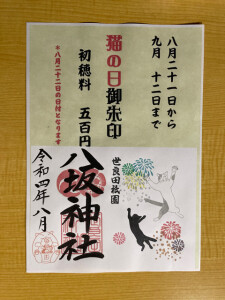 八月二十一日から
九月 十二日まで
猫の日御朱印
初穂料 五百円
＊八月二十二日の日付となります
世良田祇園
八坂神社
令和四年八月